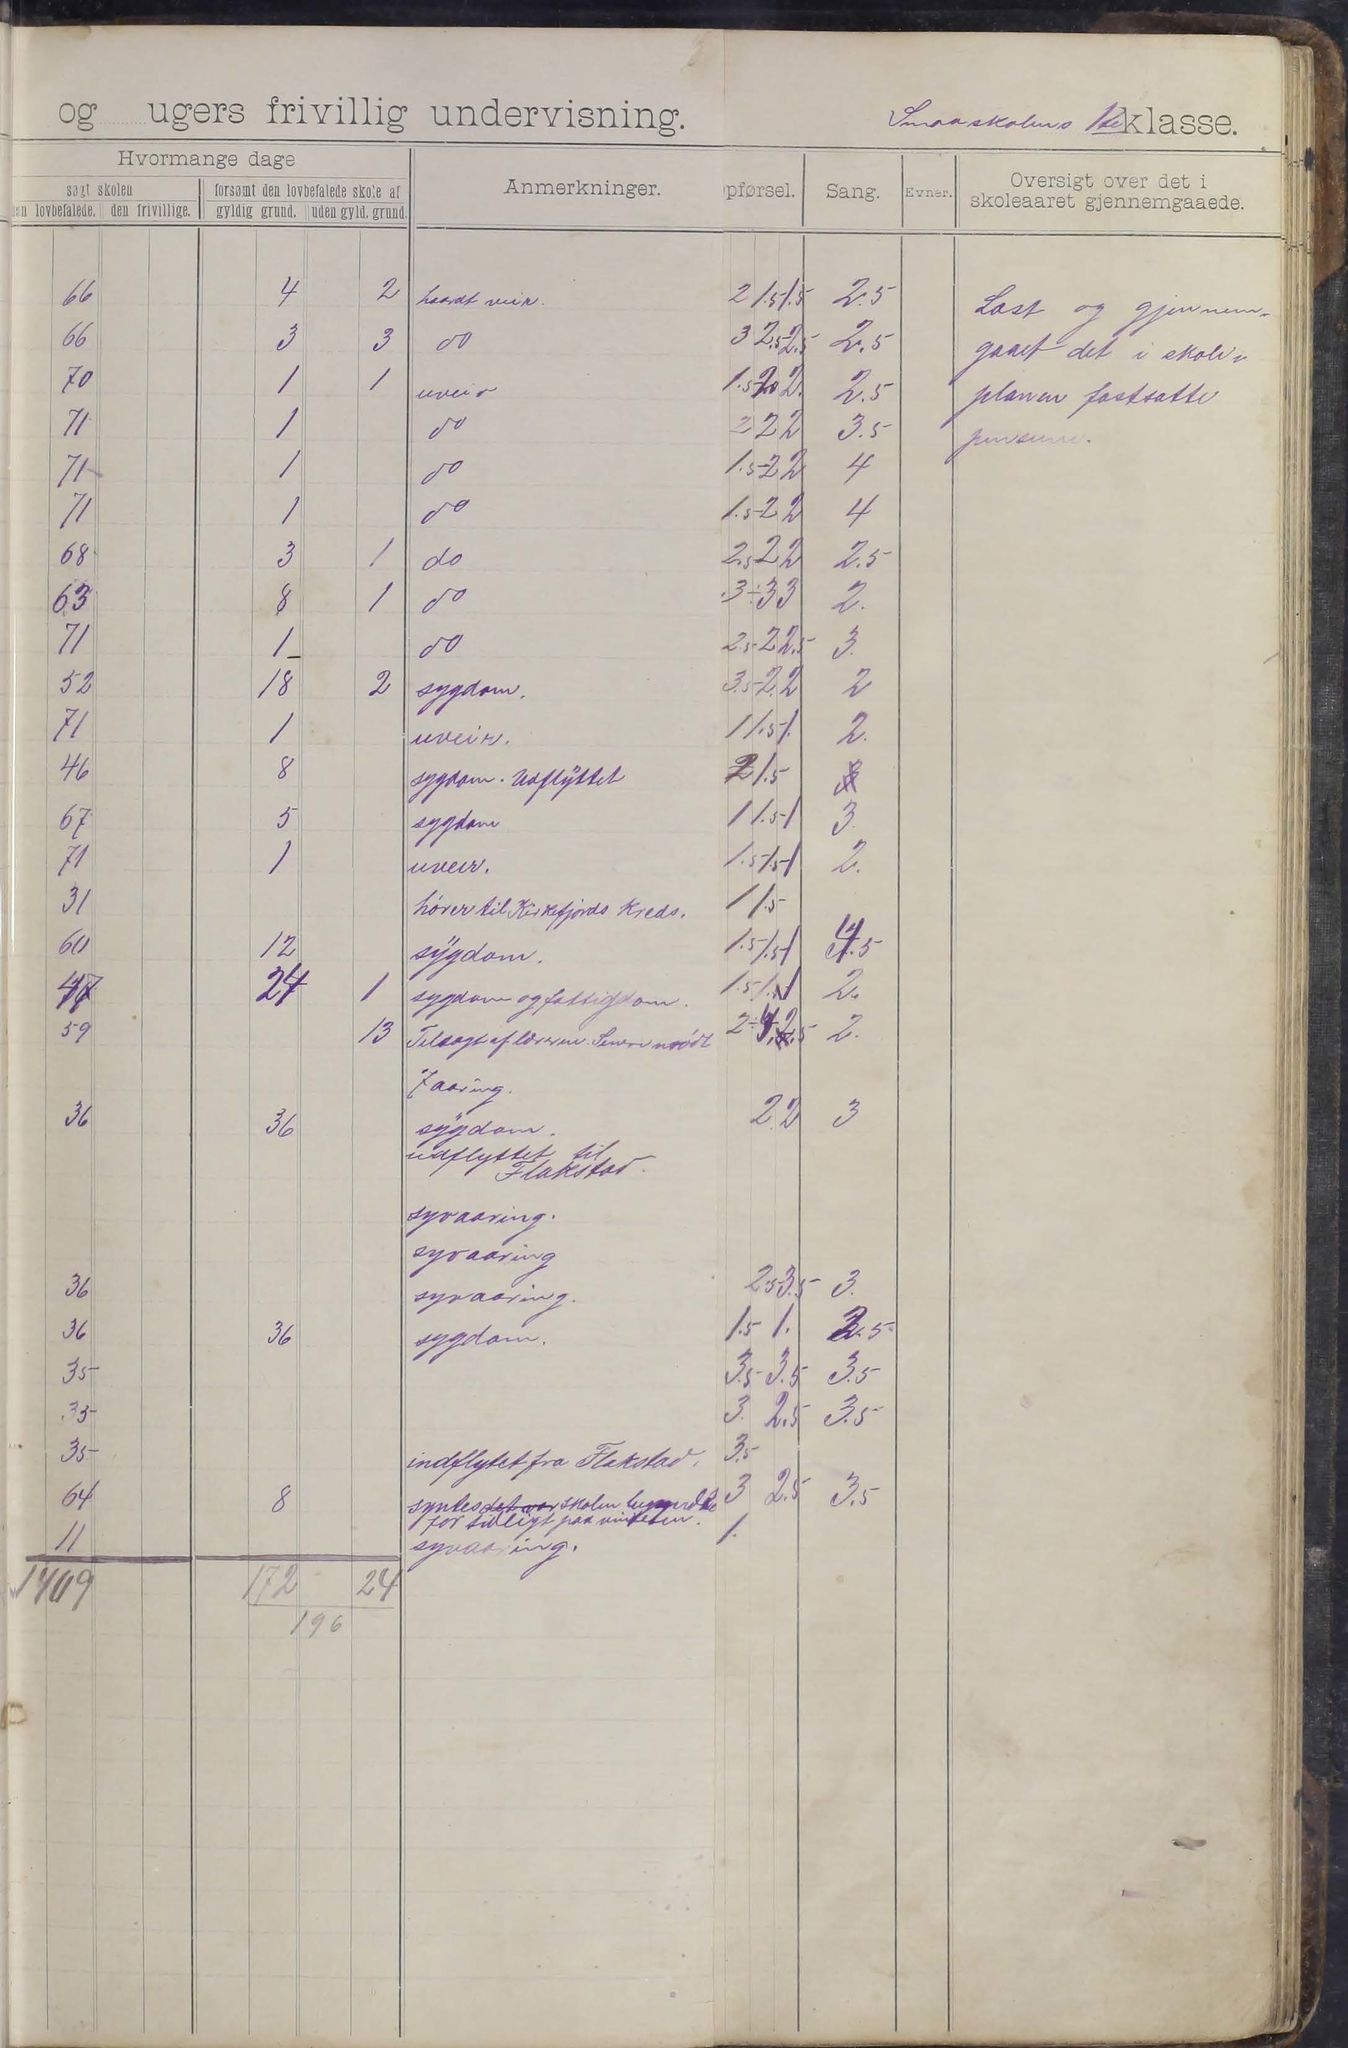 og ugers frivillig undervisning. Smaaskolens 1ste klasse.
Hvormange dage
søgt skolen forsømt den lovbefalede skole af Anmerkninger. pførsel. Sang. Evner. Oversigt over det i
en lovbefalede. den frivillige. gyldig grund. uden gyld. grund. skoleaaret gjennemgaaede.
66 4 2 haardt veir. 2 1.5 1.5 2.5 Læst og gjennem-
66 3 3 do 3 2.5 2.5 2.5 gaaet det i skole-
70 1 1 uveir 1.5 2 2. 2.5 planen fastsatte
71 1 do 2 2 2 3.5 pensum.
71 1 do 1.5 2 2 4
71 1 do 1.5 2 2 4
68 3 1 do 2.5 2 2 2.5
63 8 1 do 3÷ 3 3 2.
71 1 do 2.5 2 2.5 3.
52 18 2 sygdom. 3.5 2.2 2
71 1 uveir. 1 1.5 1. 2.
46 8 sygdom. Udflÿttet 2 1.5
67 5 sygdom 1 1.5 1 3.
71 1 uveir. 1.5 1.5 1 2.
31 hører til Kirkefjords Kreds. 1 1.5
60 12 sÿgdom. 1.5 1.5 1 4.5
47 24 1 sygdom og fattigdom. 1.5 2.
59 13 Tilsagt af læreren. Senere mødt 2÷ 2.
7 aaring.
36 36 sÿgdom. 2.2 3
udflyttet til
Flakstad.
syvaaring.
syvaaring
36 syvaaring. 2.5 3.5 3.
36 36 sygdom. 1.5 1. 2.5
35 3.5 3.5 3.5
35 3. 2.5 3.5
35 indflytet fra Flakstad. 3.5
64 8 syntes det var skolen 3 2.5 3.5
for tidligt paa vinteren.
11 syvaaring. 1.
1409 172 24
196